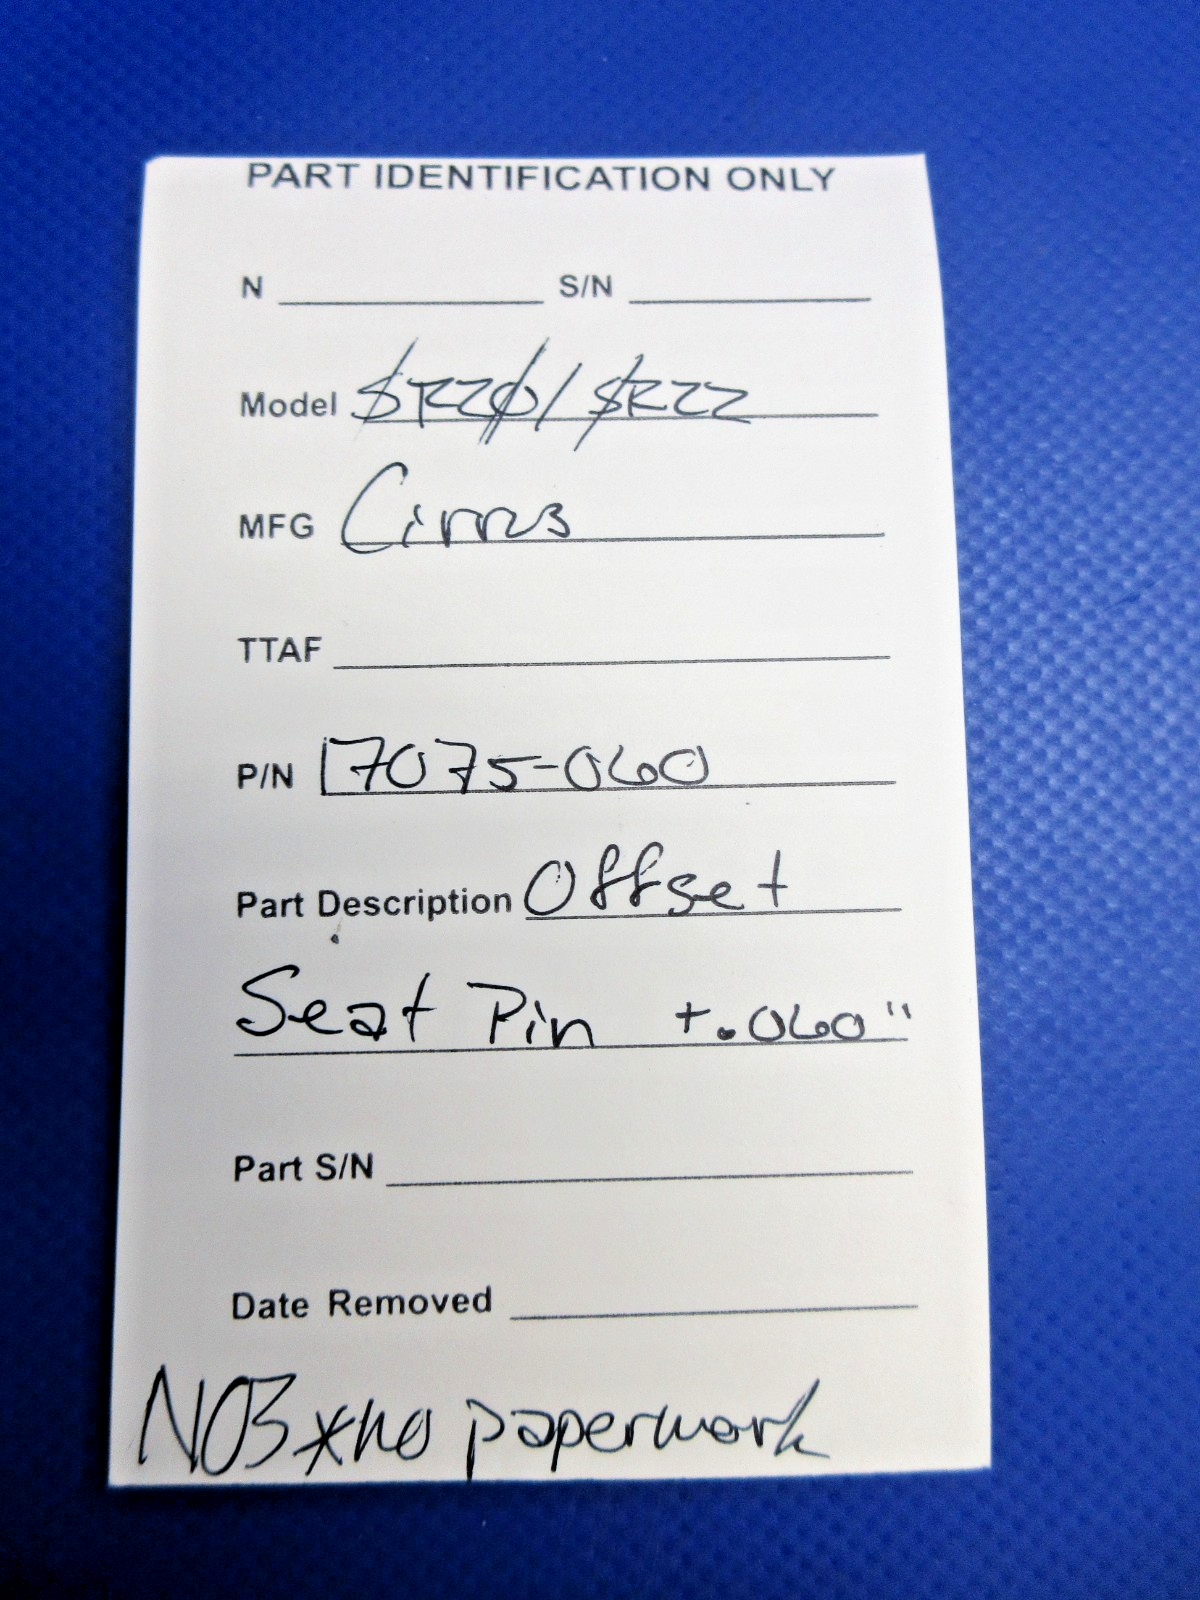 PART IDENTIFICATION ONLY
N S/N
Model SR20/SR22
MFG Cirrus
TTAF
P/N 17075-060
Part Description Offset
Seat Pin +.060"
Part S/N
Date Removed
NOS *no paperwork